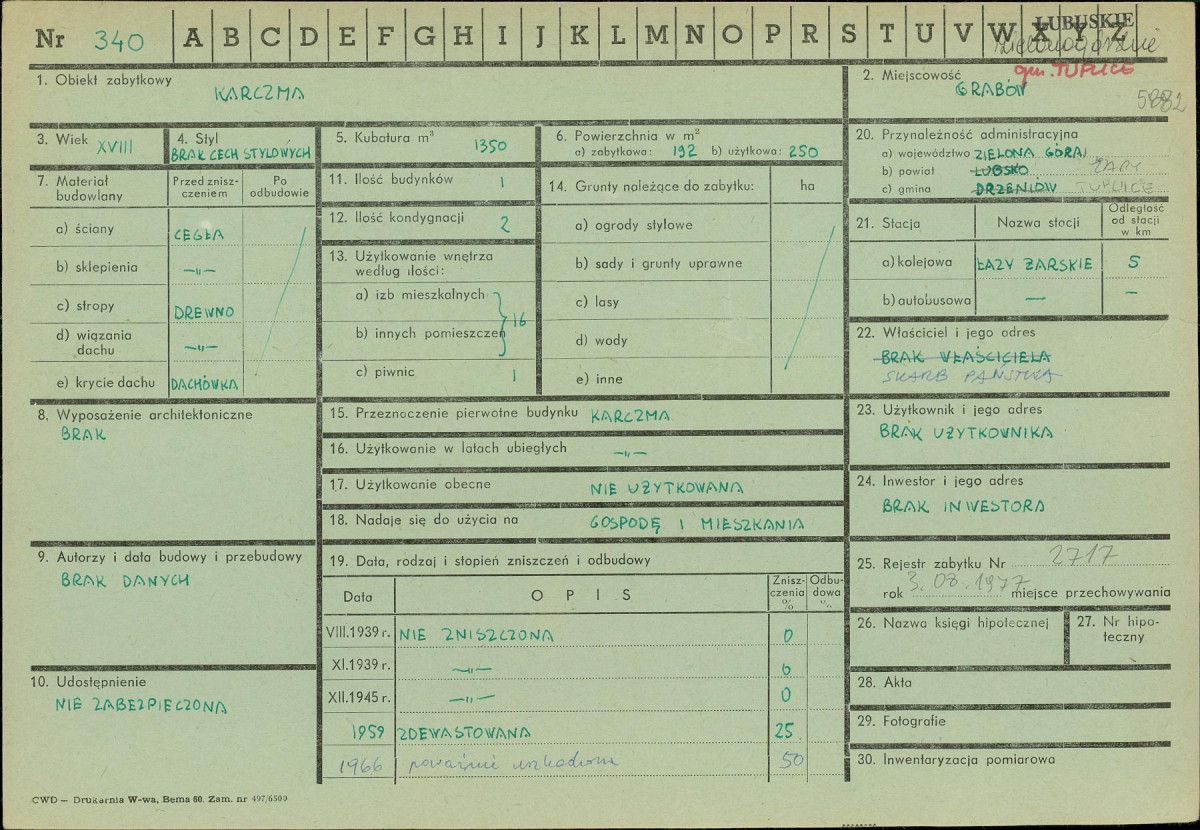 Nr 340 A B C D E F G H I J K L M N O P R S T U V W X Y Z
LUBUSKIE
zielonogórskie
gm. TUPLICE
1. Obiekt zabytkowy
KARCZMA
2. Miejscowość
GRABÓW
5882
3. Wiek XVIII
4. Styl
BRAK CECH STYLOWYCH
5. Kubatura m³
1350
6. Powierzchnia w m²
a) zabytkowa: 192 b) użytkowa: 250
20. Przynależność administracyjna
a) województwo ZIELONA GÓRA
b) powiat LUBSKO ŻARY
c) gmina DRZENIÓW TUPLICE
7. Materiał budowlany
Przed znisz-
czeniem
Po
odbudowie
a) ściany CEGŁA
b) sklepienia —„—
c) stropy DREWNO
d) wiązania
dachu —„—
e) krycie dachu DACHÓWKA
11. Ilość budynków 1
12. Ilość kondygnacji 2
13. Użytkowanie wnętrza
według ilości:
a) izb mieszkalnych
b) innych pomieszczeń
16
c) piwnic 1
14. Grunty należące do zabytku: ha
a) ogrody stylowe
b) sady i grunty uprawne
c) lasy
d) wody
e) inne
21. Stacja Nazwa stacji
Odległość
od stacji
w km
a) kolejowa ŁAZY ŻARSKIE 5
b) autobusowa — —
22. Właściciel i jego adres
BRAK WŁAŚCICIELA
SKARB PAŃSTWA
8. Wyposażenie architektoniczne
BRAK
15. Przeznaczenie pierwotne budynku KARCZMA
16. Użytkowanie w latach ubiegłych —„—
17. Użytkowanie obecne NIE UŻYTKOWANA
18. Nadaje się do użycia na GOSPODĘ I MIESZKANIA
23. Użytkownik i jego adres
BRAK UŻYTKOWNIKA
24. Inwestor i jego adres
BRAK INWESTORA
9. Autorzy i data budowy i przebudowy
BRAK DANYCH
19. Data, rodzaj i stopień zniszczeń i odbudowy
Data OPIS
Znisz-
czenia
%
Odbu-
dowa
%
VIII.1939 r. NIE ZNISZCZONA 0
XI.1939 r. —„— 0
XII.1945 r. —„— 0
1959 ZDEWASTOWANA 25
1966 poważnie uszkodzona 50
25. Rejestr zabytku Nr 2717
rok 3.08.1977 miejsce przechowywania
26. Nazwa księgi hipotecznej
27. Nr hipo-
teczny
28. Akta
29. Fotografie
30. Inwentaryzacja pomiarowa
10. Udostępnienie
NIE ZABEZPIECZONA
CWD — Drukarnia W-wa, Bema 60. Zam. nr 497/6500